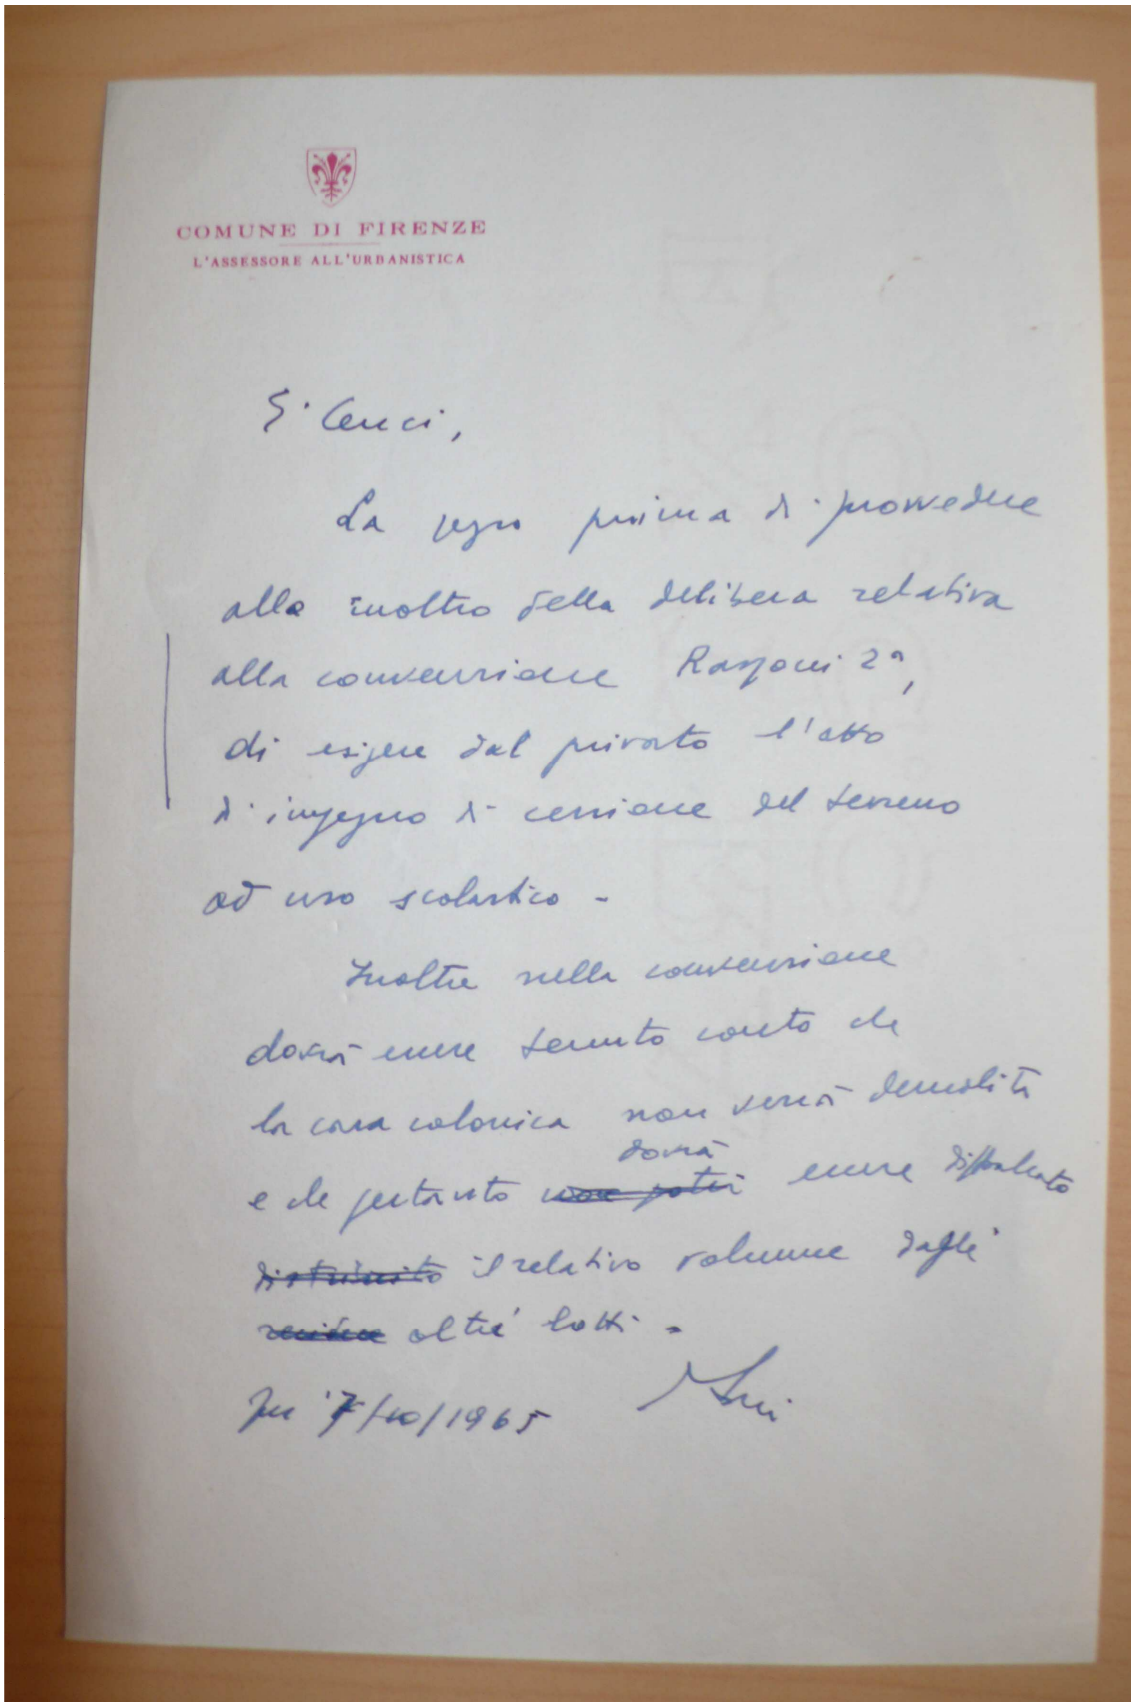 COMUNE DI FIRENZE
L'ASSESSORE ALL'URBANISTICA
S. Cenci,
La prego prima di provvedere
alla inoltro della delibera relativa
alla convenzione 2ª,
di esigere dal privato l'atto
di impegno di cessione del terreno
ad uso scolastico -
Inoltre nella convenzione
dovrà essere tenuto conto che
la casa colonica non verrà demolita
dovrà
e che pertanto non potrà essere diffalcato
distribuito il relativo volume dagli
altri lotti -
7/10/1965